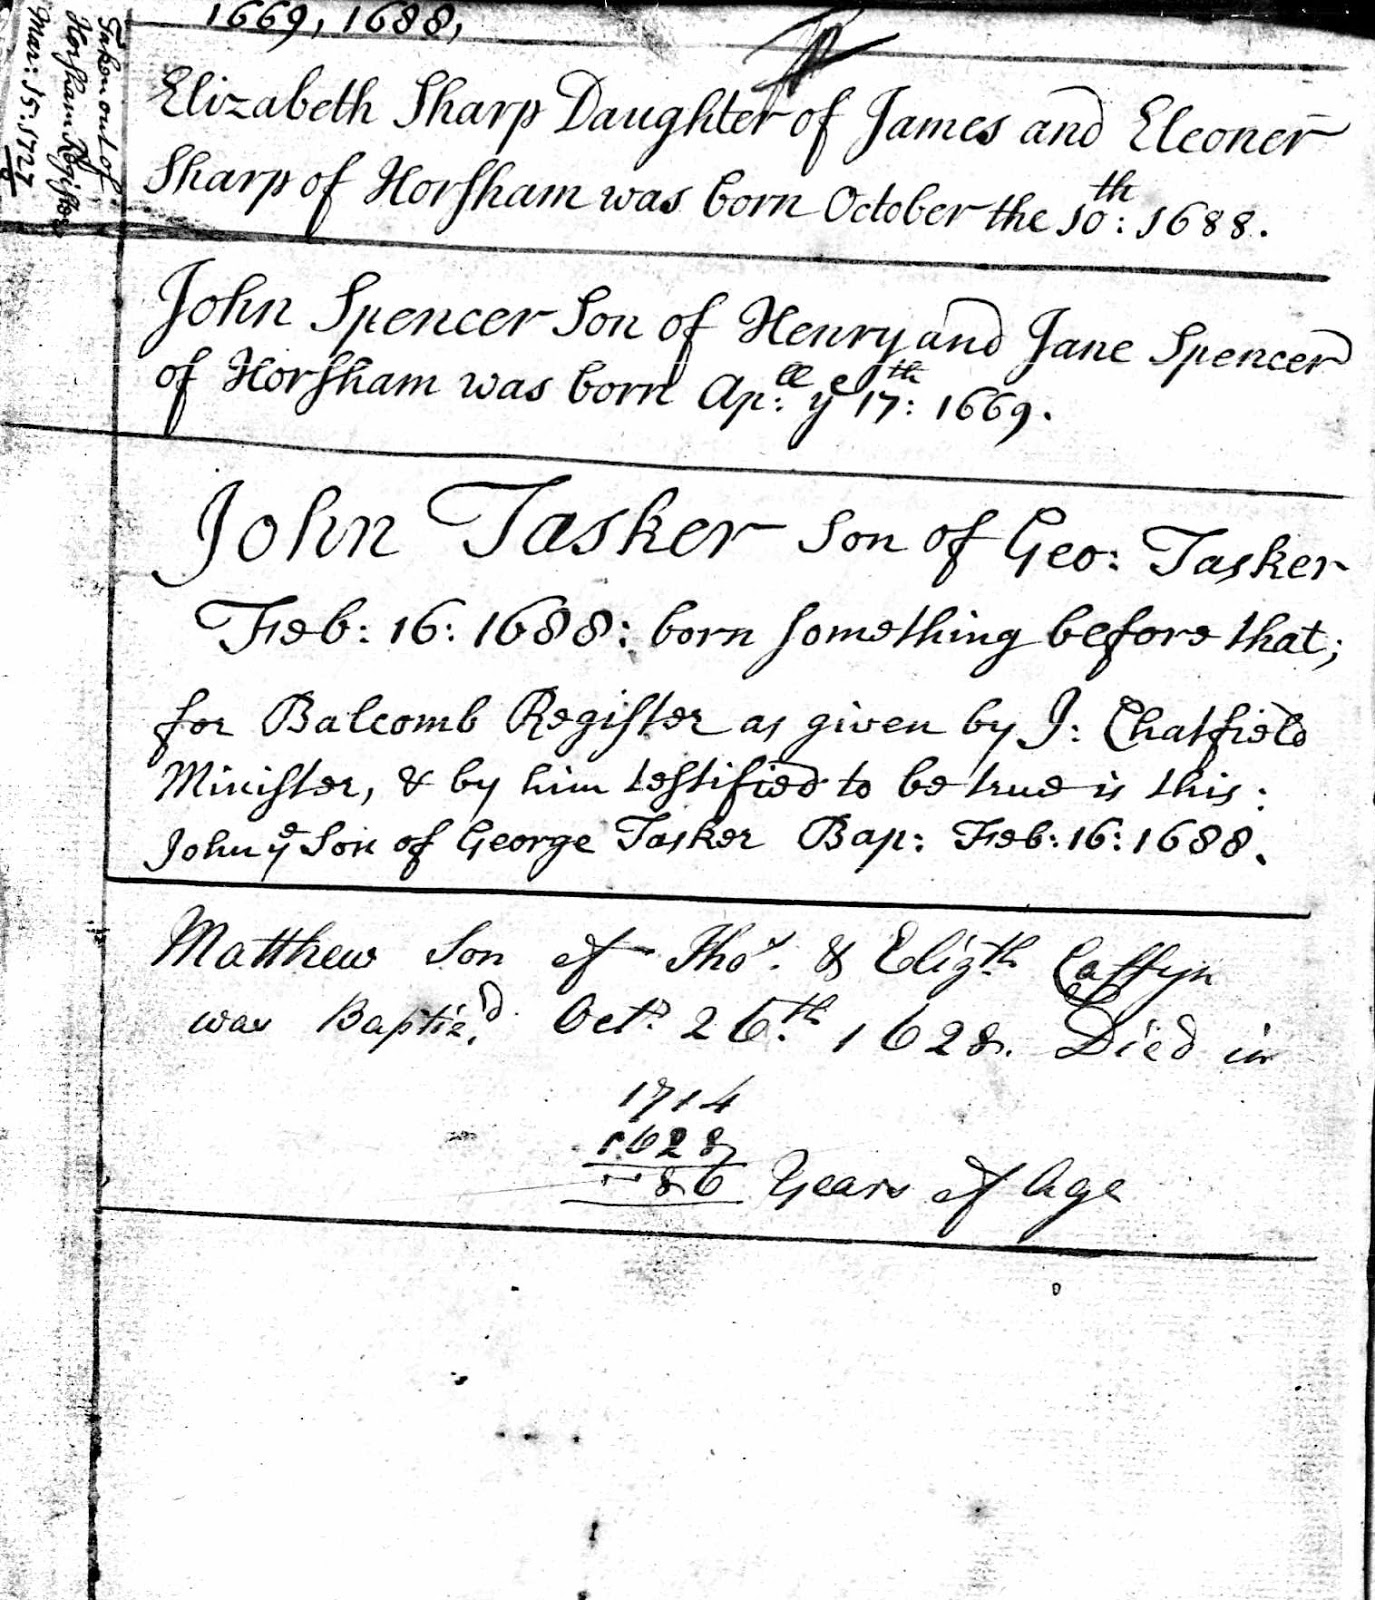 1669, 1688,
Taken out of
Horsham Register
Mar: 15: 1727
Elizabeth Sharp Daughter of James and Eleoner
Sharp of Horsham was born October the 10th: 1688.
John Spencer Son of Henry and Jane Spencer
of Horsham was born Ap:ll ye 17th: 1669.
John Tasker Son of Geo: Tasker
Feb: 16: 1688: born something before that;
for Balcomb Register as given by J: Chatfield
Minister, & by him testified to be true is this:
John ye Son of George Tasker Bap: Feb: 16: 1688.
Matthew Son of Thos. & Eliz.th Caffyn
was Baptiz'd Oct. 26.th 1628. Died in
1714
1628
86 Years of Age